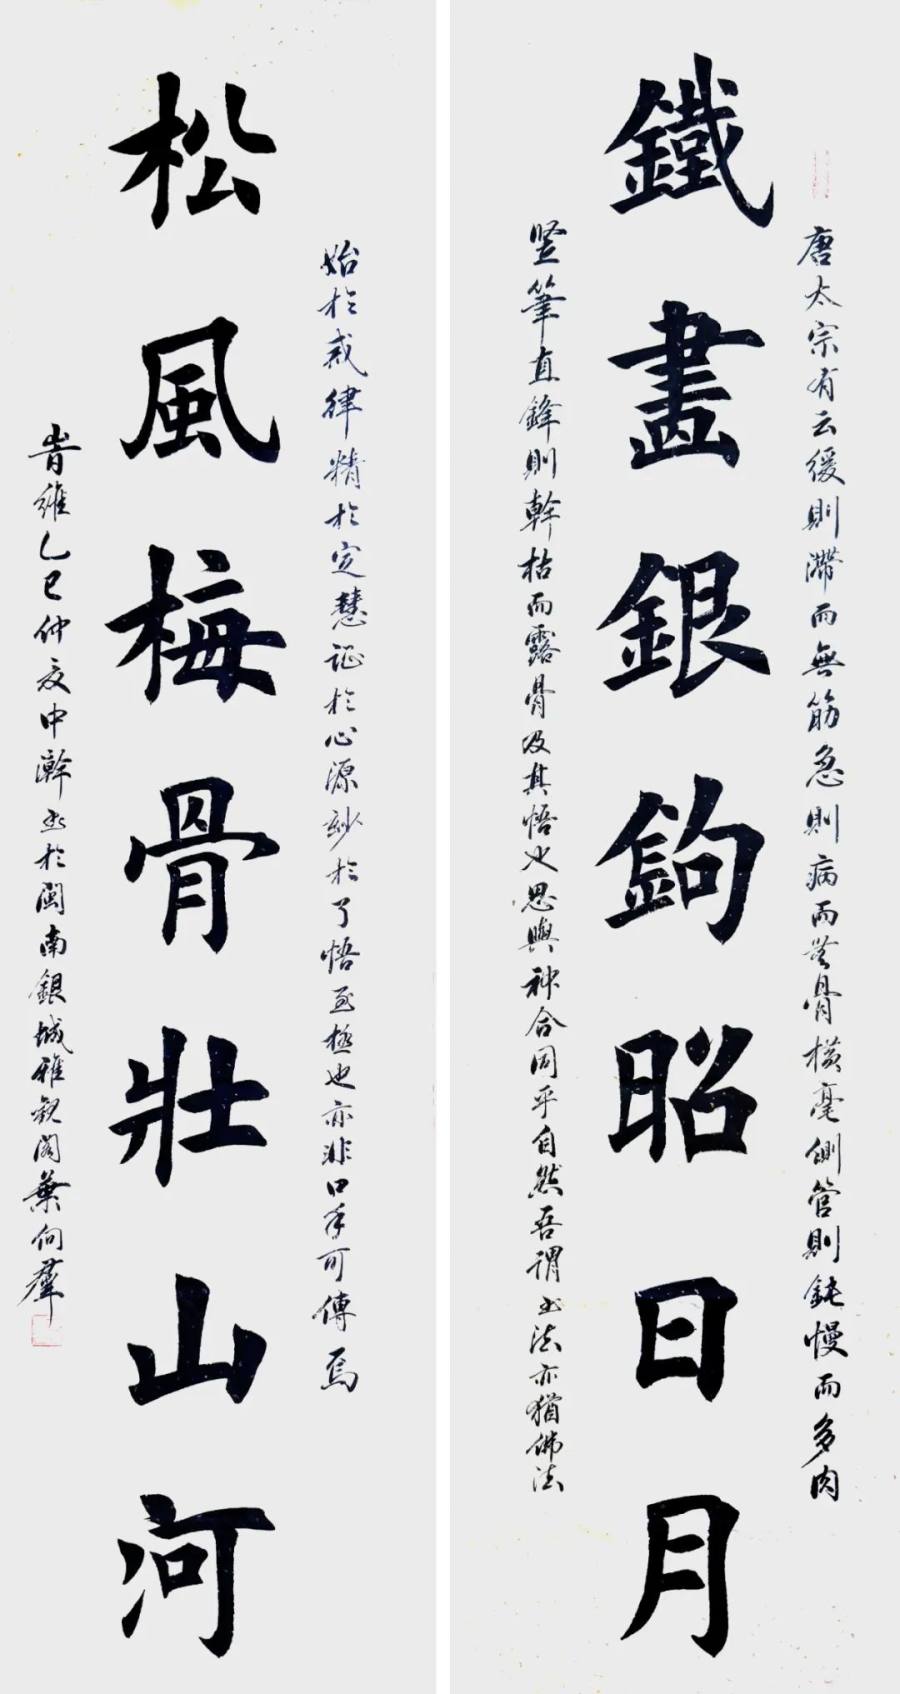 鐵畫銀鉤昭日月
唐太宗有云緩則滯而無筋急則病而無骨橫毫側管則鈍慢而多肉
豎筆直鋒則幹枯而露骨及其悟也思與神合同乎自然吾謂書法亦猶佛法
松風梅骨壯山河
始於戒律精於定慧證於心源妙於了悟至極也亦非口手可傳焉
旹維乙巳仲夏中澣書於閩南銀城雅叙閣葉向群